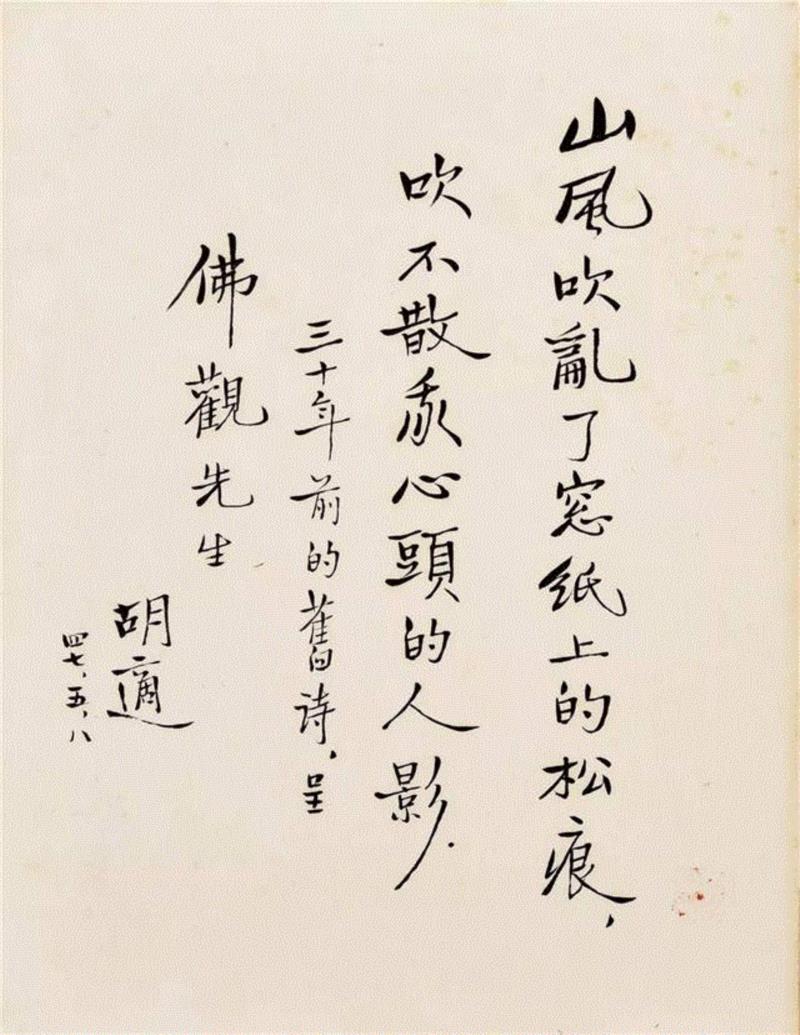 山風吹亂了窓纸上的松痕，
吹不散我心頭的人影．
三十年前的舊诗，呈
佛觀先生
胡適
四七、五、八